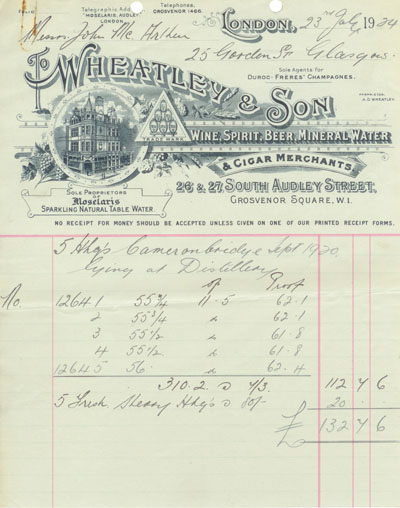 Telegraphic Add
"MOSELARIS, AUDLEY,
LONDON
Telephones,
GROSVENOR 1466.
London, 23rd July 1934
Messrs John Mc
25 Gordon St Glasgow.
Sole Agents for
DUROC-FRÈRES' CHAMPAGNES.
To WHEATLEY & SON
PROPRIETOR
A.D. WHEATLEY
TRADE MARK
WINE, SPIRIT, BEER, MINERAL WATER
& CIGAR MERCHANTS
26 & 27 SOUTH AUDLEY STREET,
GROSVENOR SQUARE, W.1.
SOLE PROPRIETORS
OF
Moselaris
SPARKLING NATURAL TABLE WATER.
NO RECEIPT FOR MONEY SHOULD BE ACCEPTED UNLESS GIVEN ON ONE OF OUR PRINTED RECEIPT FORMS.
5 Hhds Cameronbridge Sept 1930
Lying at Distillery
Proof
No. 12641 55¾ 11.5 62.1
2 55¾ " 62.1
3 55½ " 61.8
4 55½ " 61.8
12645 56 " 62.4
310.2 @ 7/3. 112 7 6
5 Fresh Sherry Hhds @ 80/- 20
£ 132 7 6